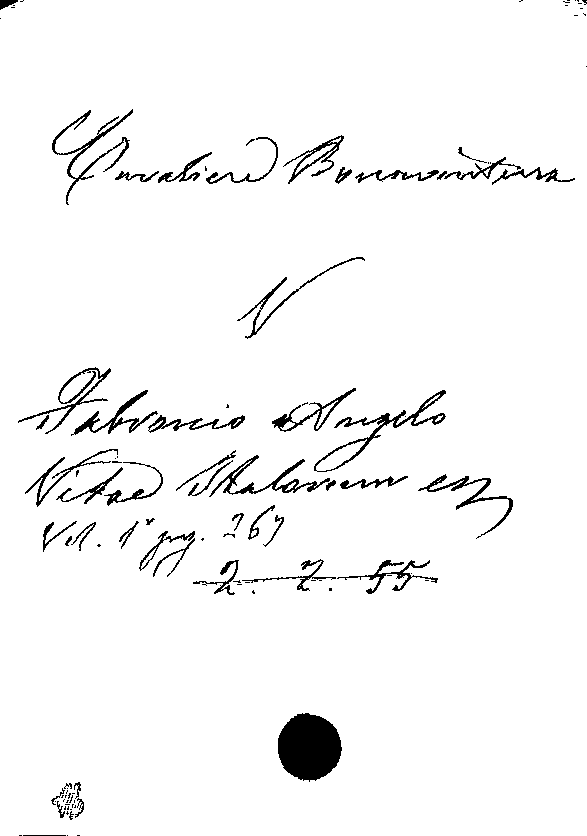 Cavalieri Bonaventura
V
Fabronio Angelo
Vitae Italorum
Vol. 1° pag. 267
2. 2. 55